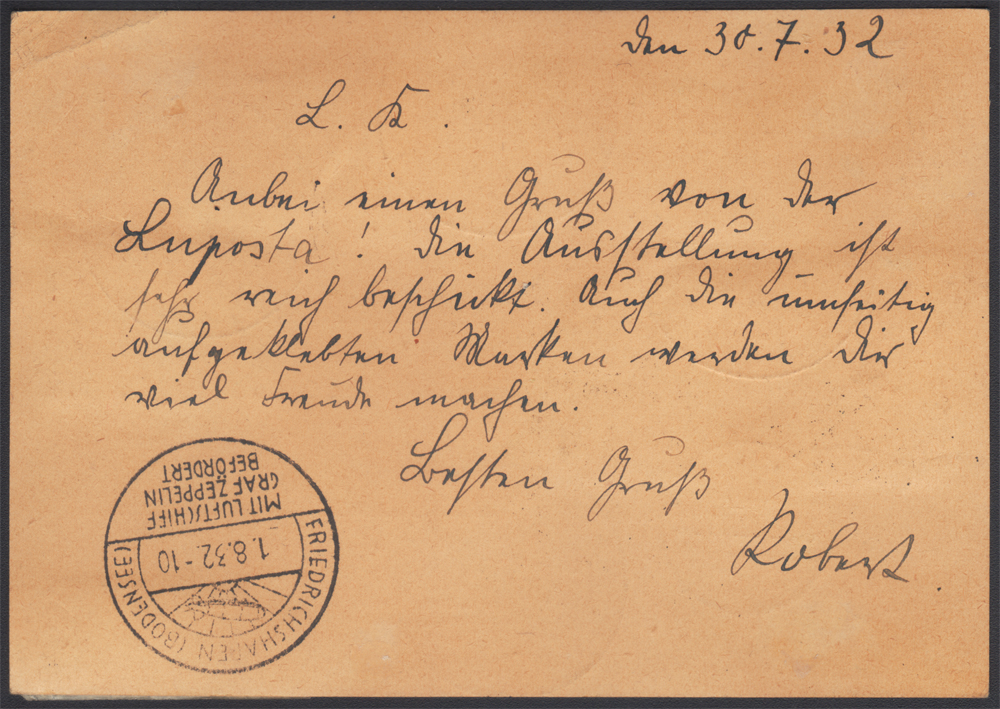 den 30.7.32
L. K.
Anbei einen Gruß von der
Luposta! die Ausstellung ist
sehr reich beschickt. Auch die umseitig
aufgeklebten Marken werden Dir
viel Freude machen.
Besten Gruß
Robert.
FRIEDRICHSHAFEN (BODENSEE)
1.8.32.-10
MIT LUFTSCHIFF
GRAF ZEPPELIN
BEFÖRDERT